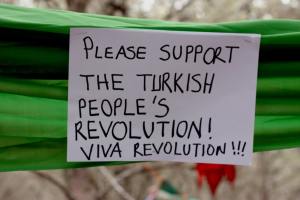 PLEASE SUPPORT
THE TURKISH
PEOPLE'S
REVOLUTION!
VIVA REVOLUTION!!!